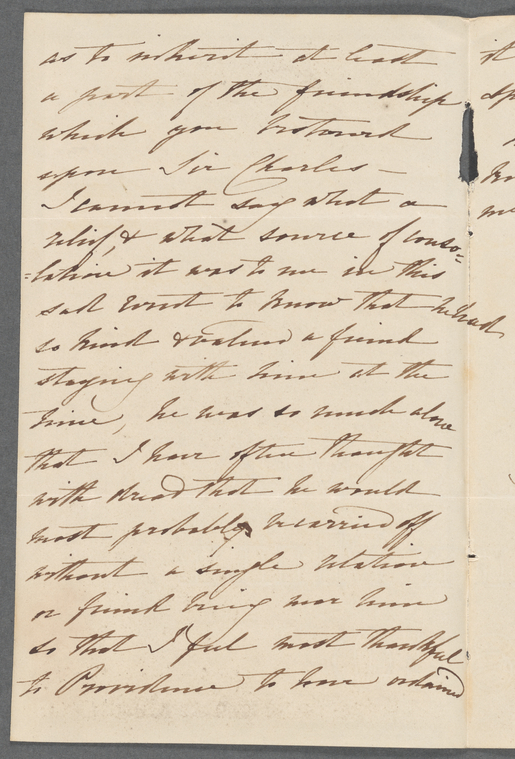 as to inherit at least
a part of the friendship
which you bestowed
upon Sir Charles –
I cannot say what a
relief, & what source of conso=
=lation it was to me in this
sad event to know that he had
so kind & valued a friend
staying with him at the
time, he was so much alone
that I have often thought
with dread that he would
most probably be carried off
without a single relation
or friend being near him
so that I feel most thankful
to Providence to have ordained
it
me